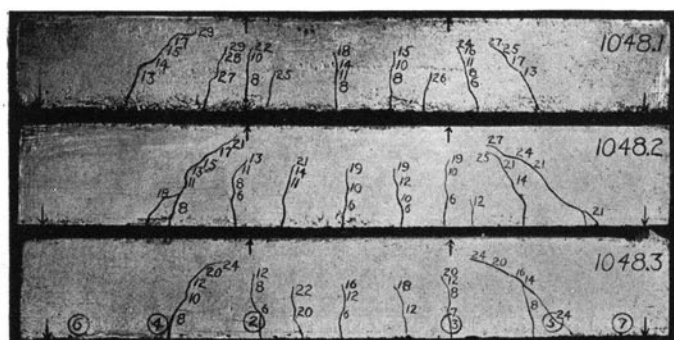 1048.1
29 17 15 14 13
29 28 27
22 10 8
25
18 14 11 8
15 10 8
26
24 16 11 8 6
27 25 17 13
1048.2
21 17 15 13 11 8
19
13 11 8 6
21 14 11
19 10 6
19 12 10 6
19 10 6
12
27 25 24 21 21 14 21
1048.3
24 20 12 10 8
12 8 6
22 20
16 12 6
18 12
20 12 8 7
24 20 16 14 8 24
6 4 2 3 5 7